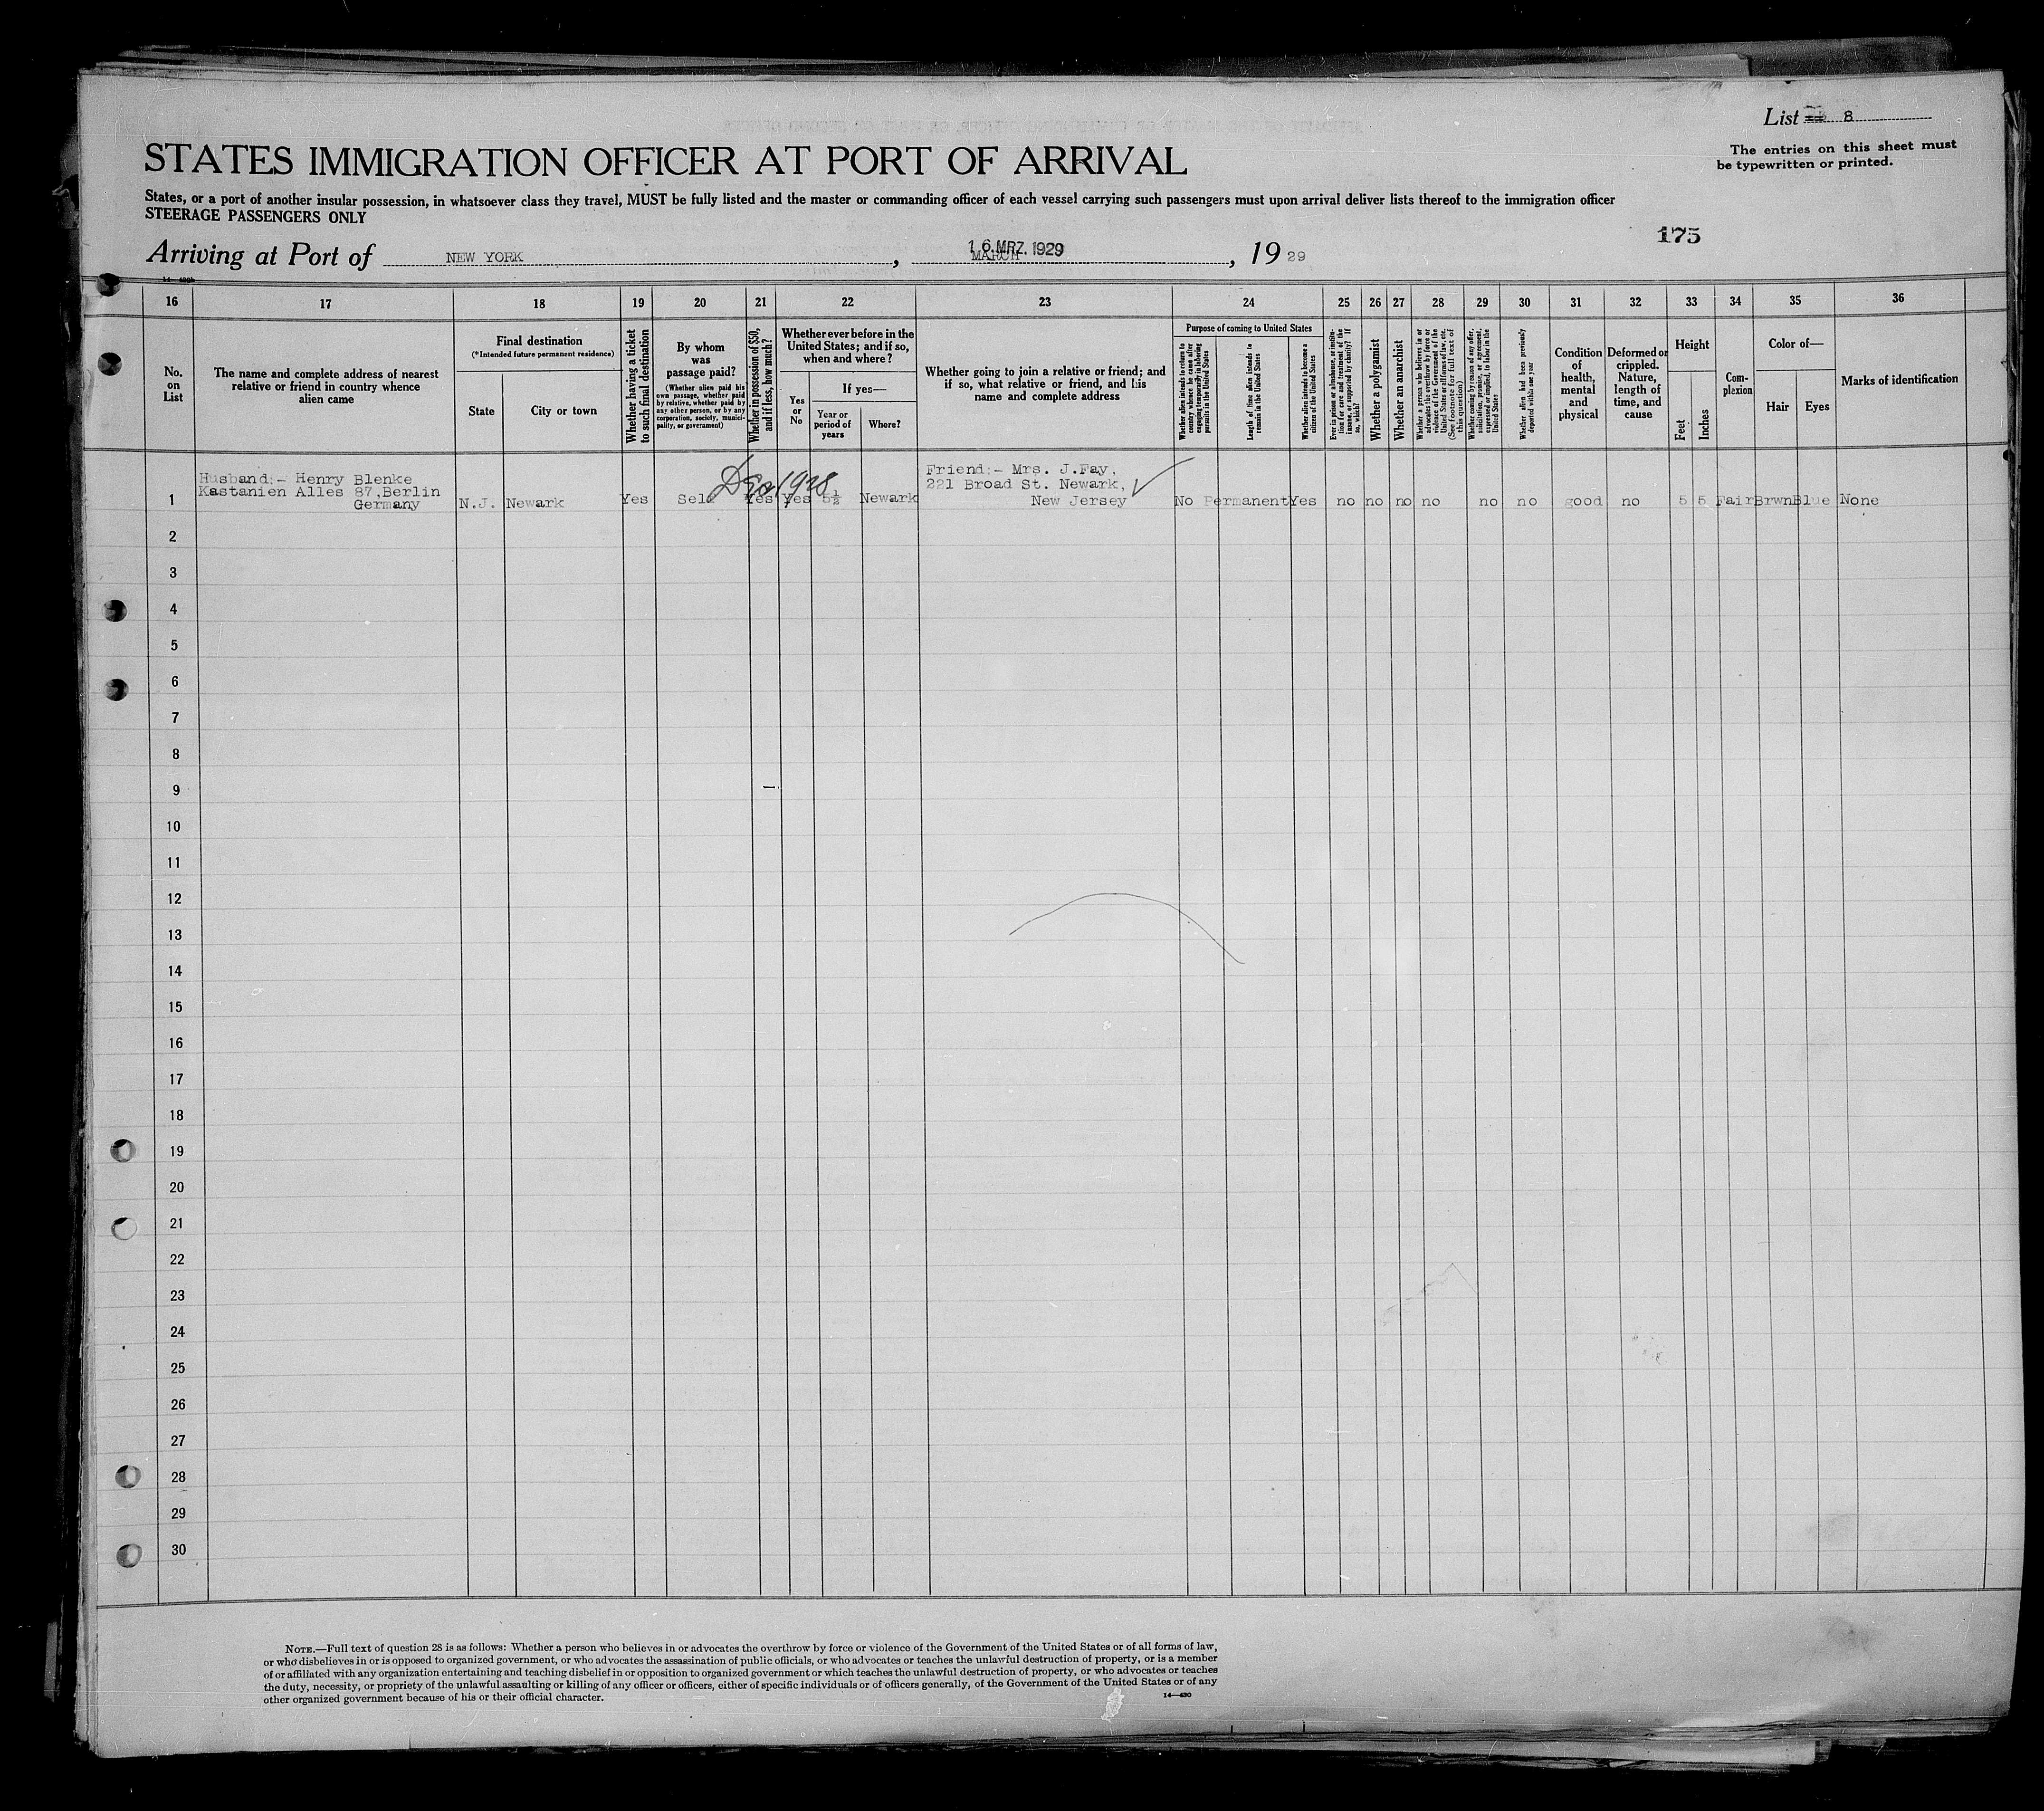 List 8
The entries on this sheet must
be typewritten or printed.
STATES IMMIGRATION OFFICER AT PORT OF ARRIVAL
States, or a port of another insular possession, in whatsoever class they travel, MUST be fully listed and the master or commanding officer of each vessel carrying such passengers must upon arrival deliver lists thereof to the immigration officer
STEERAGE PASSENGERS ONLY
175
Arriving at Port of NEW YORK, MARCH 16.MRZ.1929, 19 29
16 17 18 19 20 21 22 23 24 25 26 27 28 29 30 31 32 33 34 35 36
No. on List
The name and complete address of nearest
relative or friend in country whence
alien came
Final destination
(*Intended future permanent residence)
State
City or town
Whether having a ticket
to such final destination
By whom
was
passage paid?
(Whether alien paid his
own passage, whether paid
by relative, whether paid by
any other person, or by any
corporation, society, munici-
pality, or government)
Whether in possession of $50,
and if less, how much?
Whether ever before in the
United States; and if so,
when and where?
Yes
or
No
If yes—
Year or
period of
years
Where?
Whether going to join a relative or friend; and
if so, what relative or friend, and his
name and complete address
Purpose of coming to United States
Whether alien intends to return to
country whence he came after
engaging temporarily in laboring
pursuits in the United States
Length of time alien intends to
remain in the United States
Whether alien intends to become a
citizen of the United States
Ever in prison or almshouse, or institu-
tion for care and treatment of the
insane, or supported by charity? If
so, which?
Whether a polygamist
Whether an anarchist
Whether a person who believes in or
advocates the overthrow by force or
violence of the Government of the
United States or all forms of law, etc.
(See footnote for full text of
this question)
Whether coming by reason of any offer,
solicitation, promise, or agreement,
expressed or implied, to labor in the
United States
Whether alien had been previously
deported within one year
Condition
of
health,
mental
and
physical
Deformed or
crippled.
Nature,
length of
time, and
cause
Height
Feet
Inches
Com-
plexion
Color of—
Hair
Eyes
Marks of identification
Husband:- Henry Blenke
Kastanien Alles 87,Berlin
Germany
1 N.J. Newark Yes Self Yes Yes 5½ Newark
Dec 1928
Friend:- Mrs. J.Fay,
221 Broad St. Newark,
New Jersey
No Permanent Yes no no no no no no good no 5 5 Fair Brwn Blue None
2
3
4
5
6
7
8
9
10
11
12
13
14
15
16
17
18
19
20
21
22
23
24
25
26
27
28
29
30
NOTE.—Full text of question 28 is as follows: Whether a person who believes in or advocates the overthrow by force or violence of the Government of the United States or of all forms of law,
or who disbelieves in or is opposed to organized government, or who advocates the assassination of public officials, or who advocates or teaches the unlawful destruction of property, or is a member
of or affiliated with any organization entertaining and teaching disbelief in or opposition to organized government or which teaches the unlawful destruction of property, or who advocates or teaches
the duty, necessity, or propriety of the unlawful assaulting or killing of any officer or officers, either of specific individuals or of officers generally, of the Government of the United States or of any
other organized government because of his or their official character.
14—430